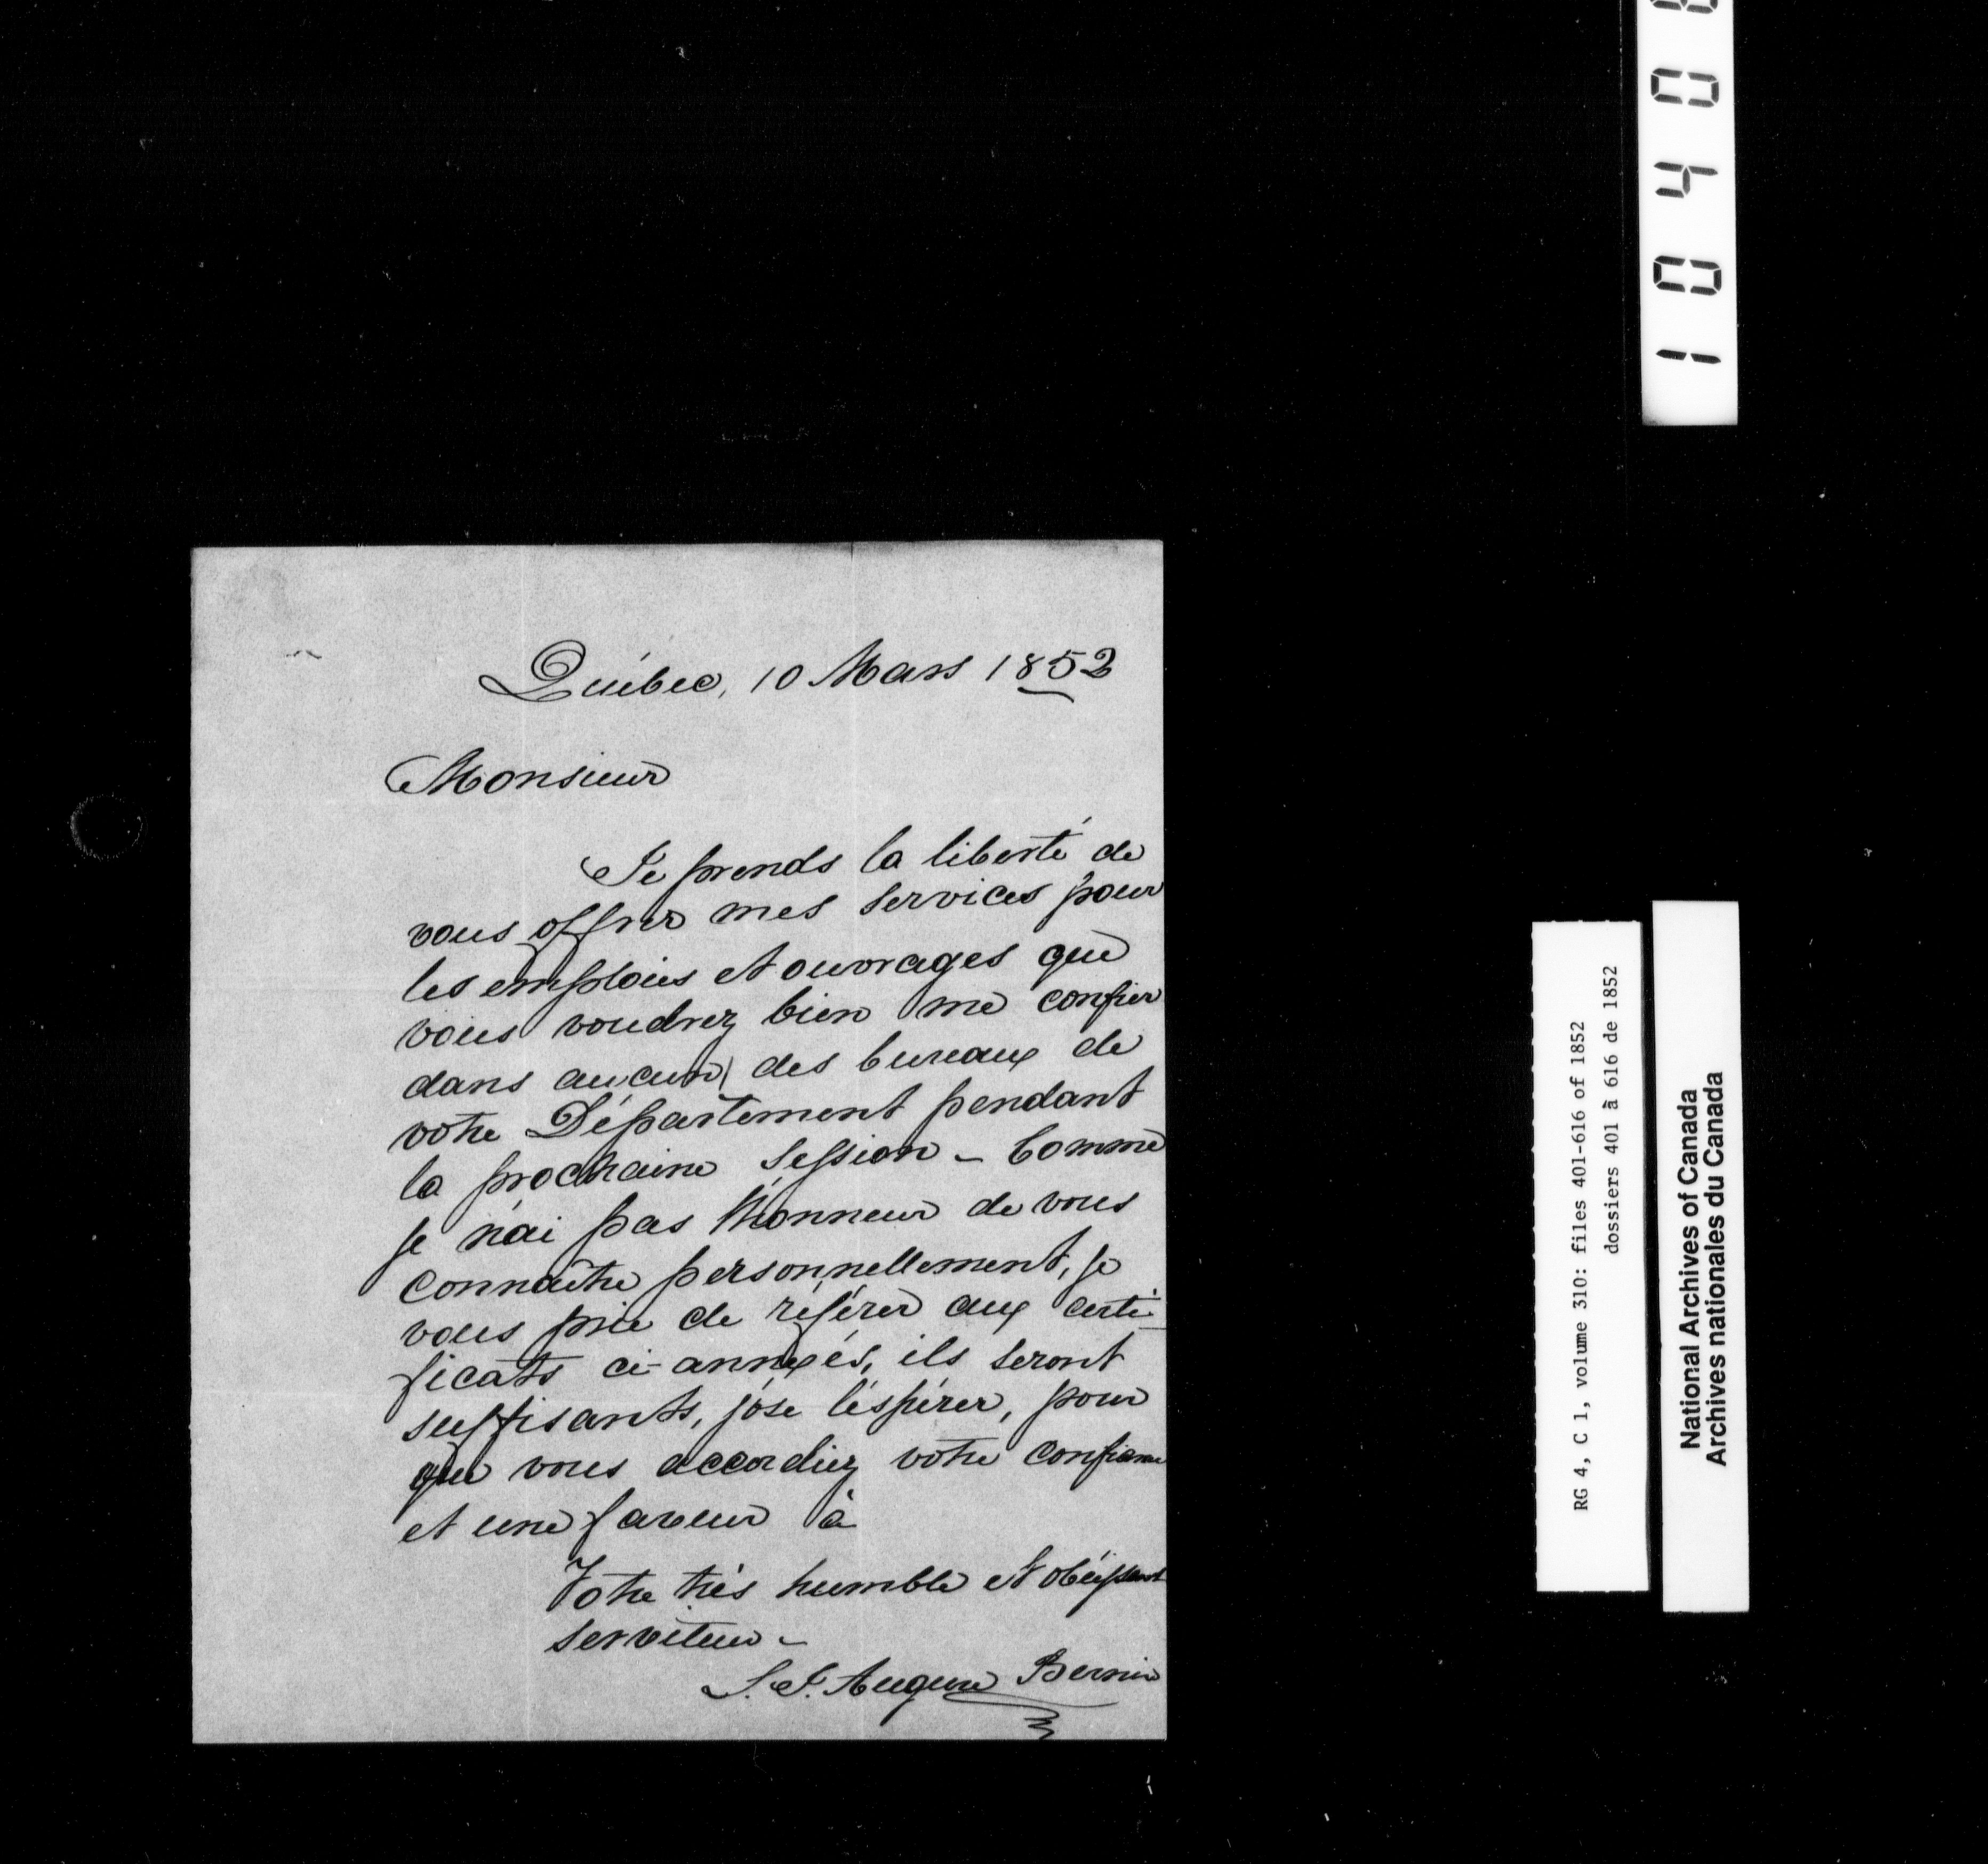 Québec, 10 Mars 1852
Monsieur
Je prends la liberté de
vous offrir mes services pour
les emplois et ouvrages que
vous voudrez bien me confier
dans aucun des bureaux de
votre Département pendant
la prochaine Session - Comme
je n'ai pas l'honneur de vous
connaître personnellement, je
vous prie de référer aux certi-
ficats ci-annexés, ils seront
suffisants, j'ose l'espérer, pour
que vous accordiez votre confiance
et une faveur à
Votre très humble et obéissant
serviteur -
Bernier
1040
RG 4, C 1, volume 310: files 401-616 of 1852
dossiers 401 à 616 de 1852
National Archives of Canada
Archives nationales du Canada